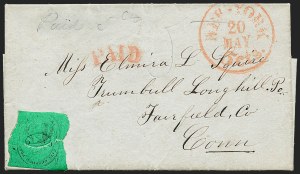 Paid
NEW-YORK
20
MAY
PAID
Miss Elmira L Squire
Trumbull Long hill P.o
Fairfield, Co
Conn